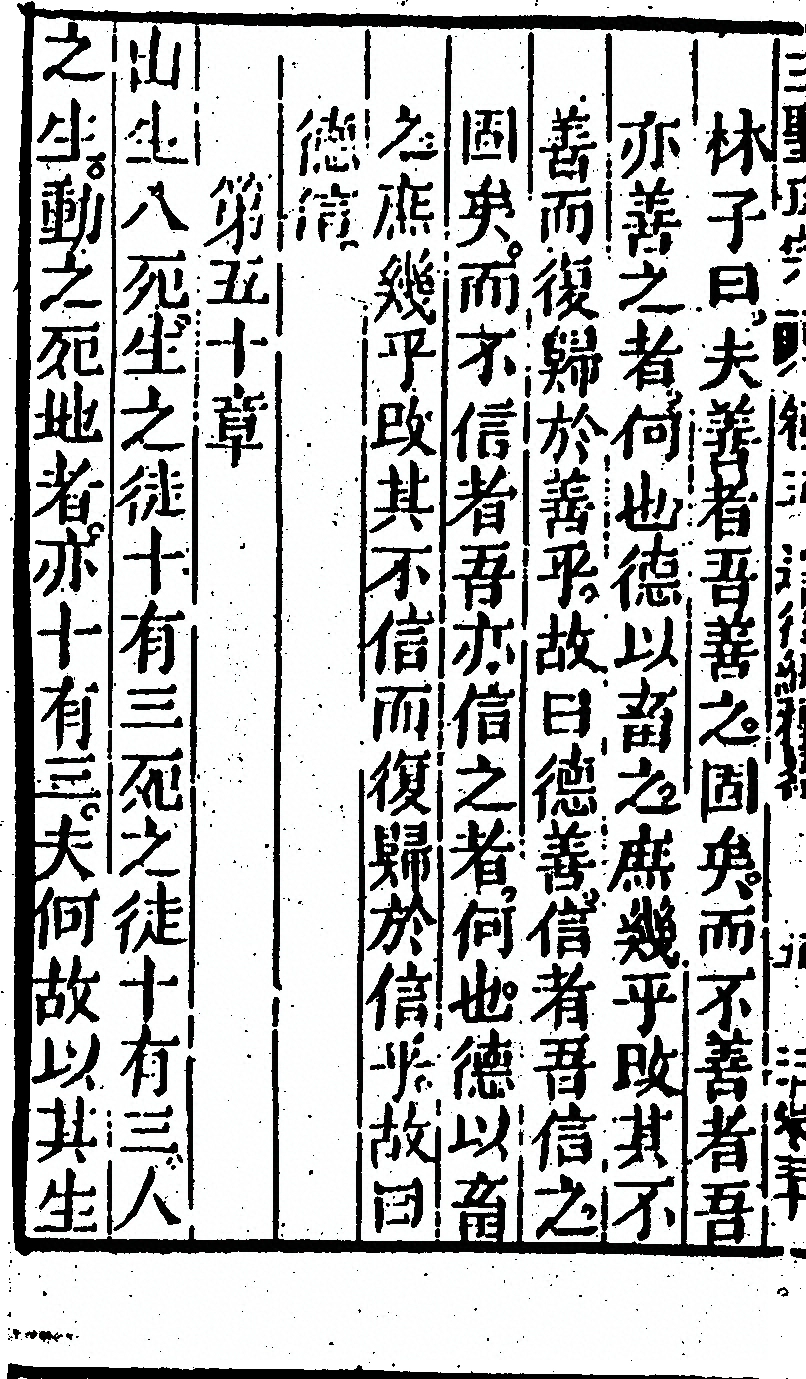 林子曰夫善者吾善之固矣而不善者吾
亦善之者何也德以畜之庶幾乎改其不
善而復歸於善乎故曰德善信者吾信之
固矣而不信者吾亦信之者何也德以畜
之庶幾乎改其不信而復歸於信乎故曰
德信
第五十章
出生入死生之徒十有三死之徒十有三人
之生動之死地者亦十有三夫何故以其生